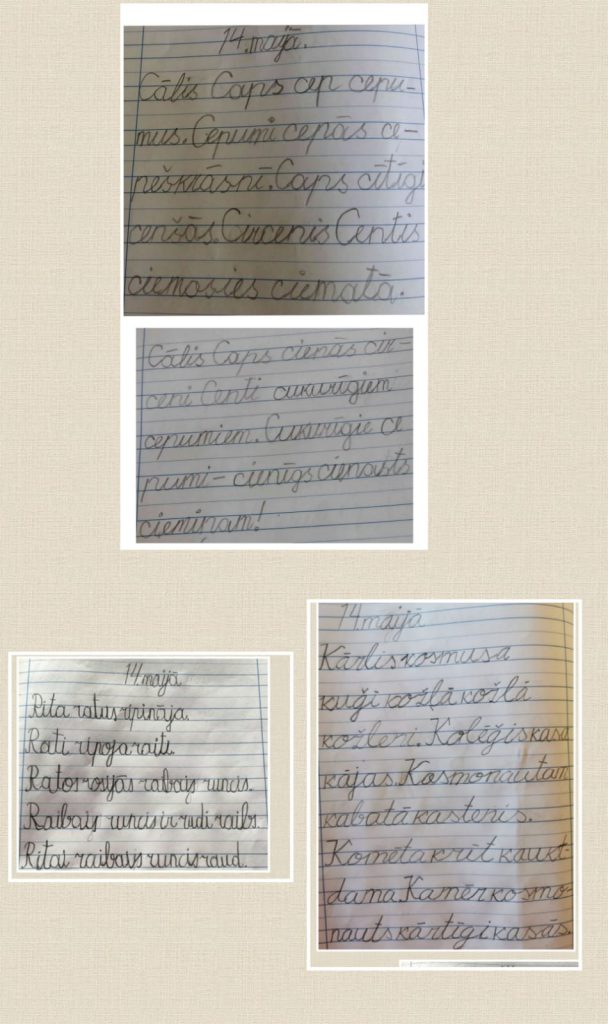 14.maijā.
Cālis Caps cep cepu-
mus. Cepumi cepās ce-
peškrāsnī. Caps cītīgi
cenšās. Circenis Centis
ciemosies ciematā.
Cālis Caps cienās cir-
ceni Centi cukurīgiem
cepumiem. Cukurīgie ce
pumi - cienīgs cienasts
ciemiņam!
14.maijā
Rita ratus ripināja.
Rati ripoja raiti.
Ratos rosījās raibais runcis.
Raibais runcis ir rudi raibs.
Ritai raibais runcis raud.
14.maijā
Kārlis kosmusa
kuģi košlā košlā
košleni. Kolēģis kasa
kājas. Kosmonautam
kabatā kastenis.
Komēta krīt kaukt-
dama. Kamēr kosmo-
nauts kārtīgi kasās.